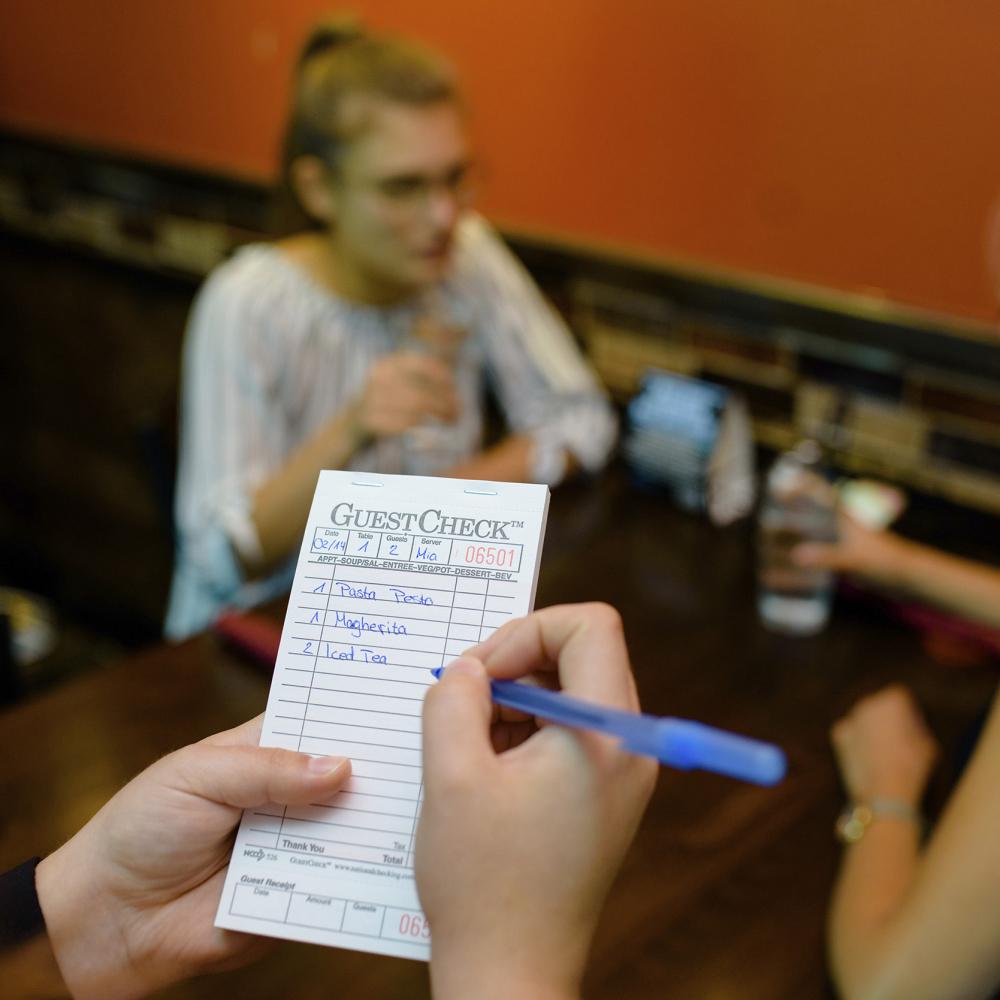 GUESTCHECK™
Date Table Guests Server
02/14 1 2 Mia 06501
APPT-SOUP/SAL-ENTREE-VEG/POT-DESSERT-BEV
1 Pasta Pesto
1 Magherita
2 Iced Tea
Tax
Thank You Total
526 GUESTCHECK™ www.nationalchecking.com
Guest Receipt
Date Amount Guests
065